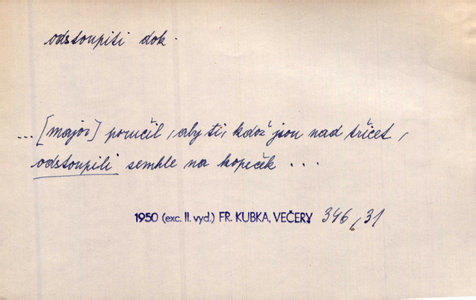 odstoupiti dok.
... [major] poručil, aby ti, kdož jsou nad třicet,
odstoupili semhle na kopeček ...
1950 (exc. II. vyd.) FR. KUBKA, VEČERY 346, 31